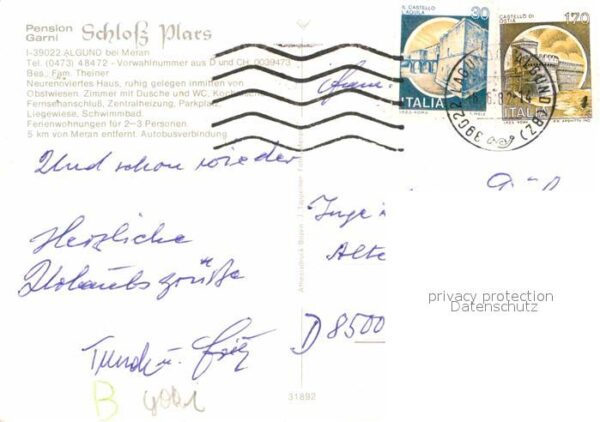 Pension
Garni Schloß Plars
I-39022 ALGUND bei Meran
Tel. (0473) 48472 - Vorwahlnummer aus D und CH 0039473
Bes.: Fam. Theiner
Neurenoviertes Haus, ruhig gelegen inmitten von
Obstwiesen. Zimmer mit Dusche und WC,
Fernsehanschluß, Zentralheizung, Parkplatz,
Liegewiese, Schwimmbad.
Ferienwohnungen für 2-3 Personen.
5 km von Meran entfernt. Autobusverbindung
IL CASTELLO
L'AQUILA
30
ITALIA
CASTELLO DI
OSTIA
170
ITALIA
39022 LAGUNDO (BZ)
Fam.
Und schon wieder
Herzliche
Urlaubsgrüße
Trude u. Fritz
Inge
Alte
D 8500
privacy protection
Datenschutz
31892
B 4001